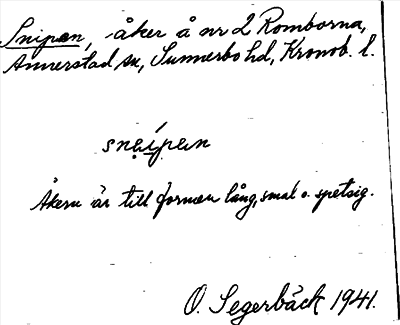 Snipen, åker å nr 2 Romborna,
Annerstad sn, Sunnerbo hd, Kronob. l.
snɑ̣ípen
Åkern är till formen lång, smal o. spetsig.
O. Segerbäck 1941.